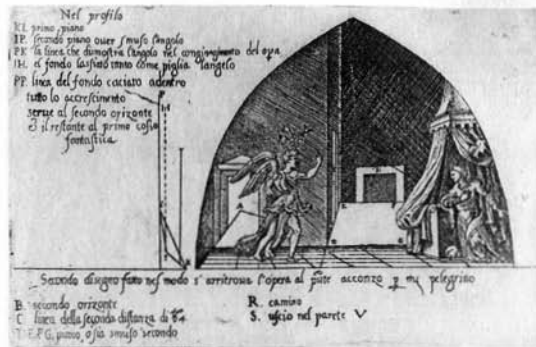 Nel profilo
KI. primo piano
IP. secondo piano over smuso l'angolo
PK la linea che dumostra l'angolo nel congiungimento del
IH. el fondo lassino tanto come piglia l'angelo
PP. linea del fondo caciato adentro
tutto lo accrescimento
serve al secondo orizonte
è il restante al primo
fantastica
Secondo disegno fatto nel modo s' arritrova l'opera al acconzo mj pelegrino
B. secondo orizonte
C linea della seconda distanza di
piano, o sia smuso secondo
R. camino
S. uscio nel parete V